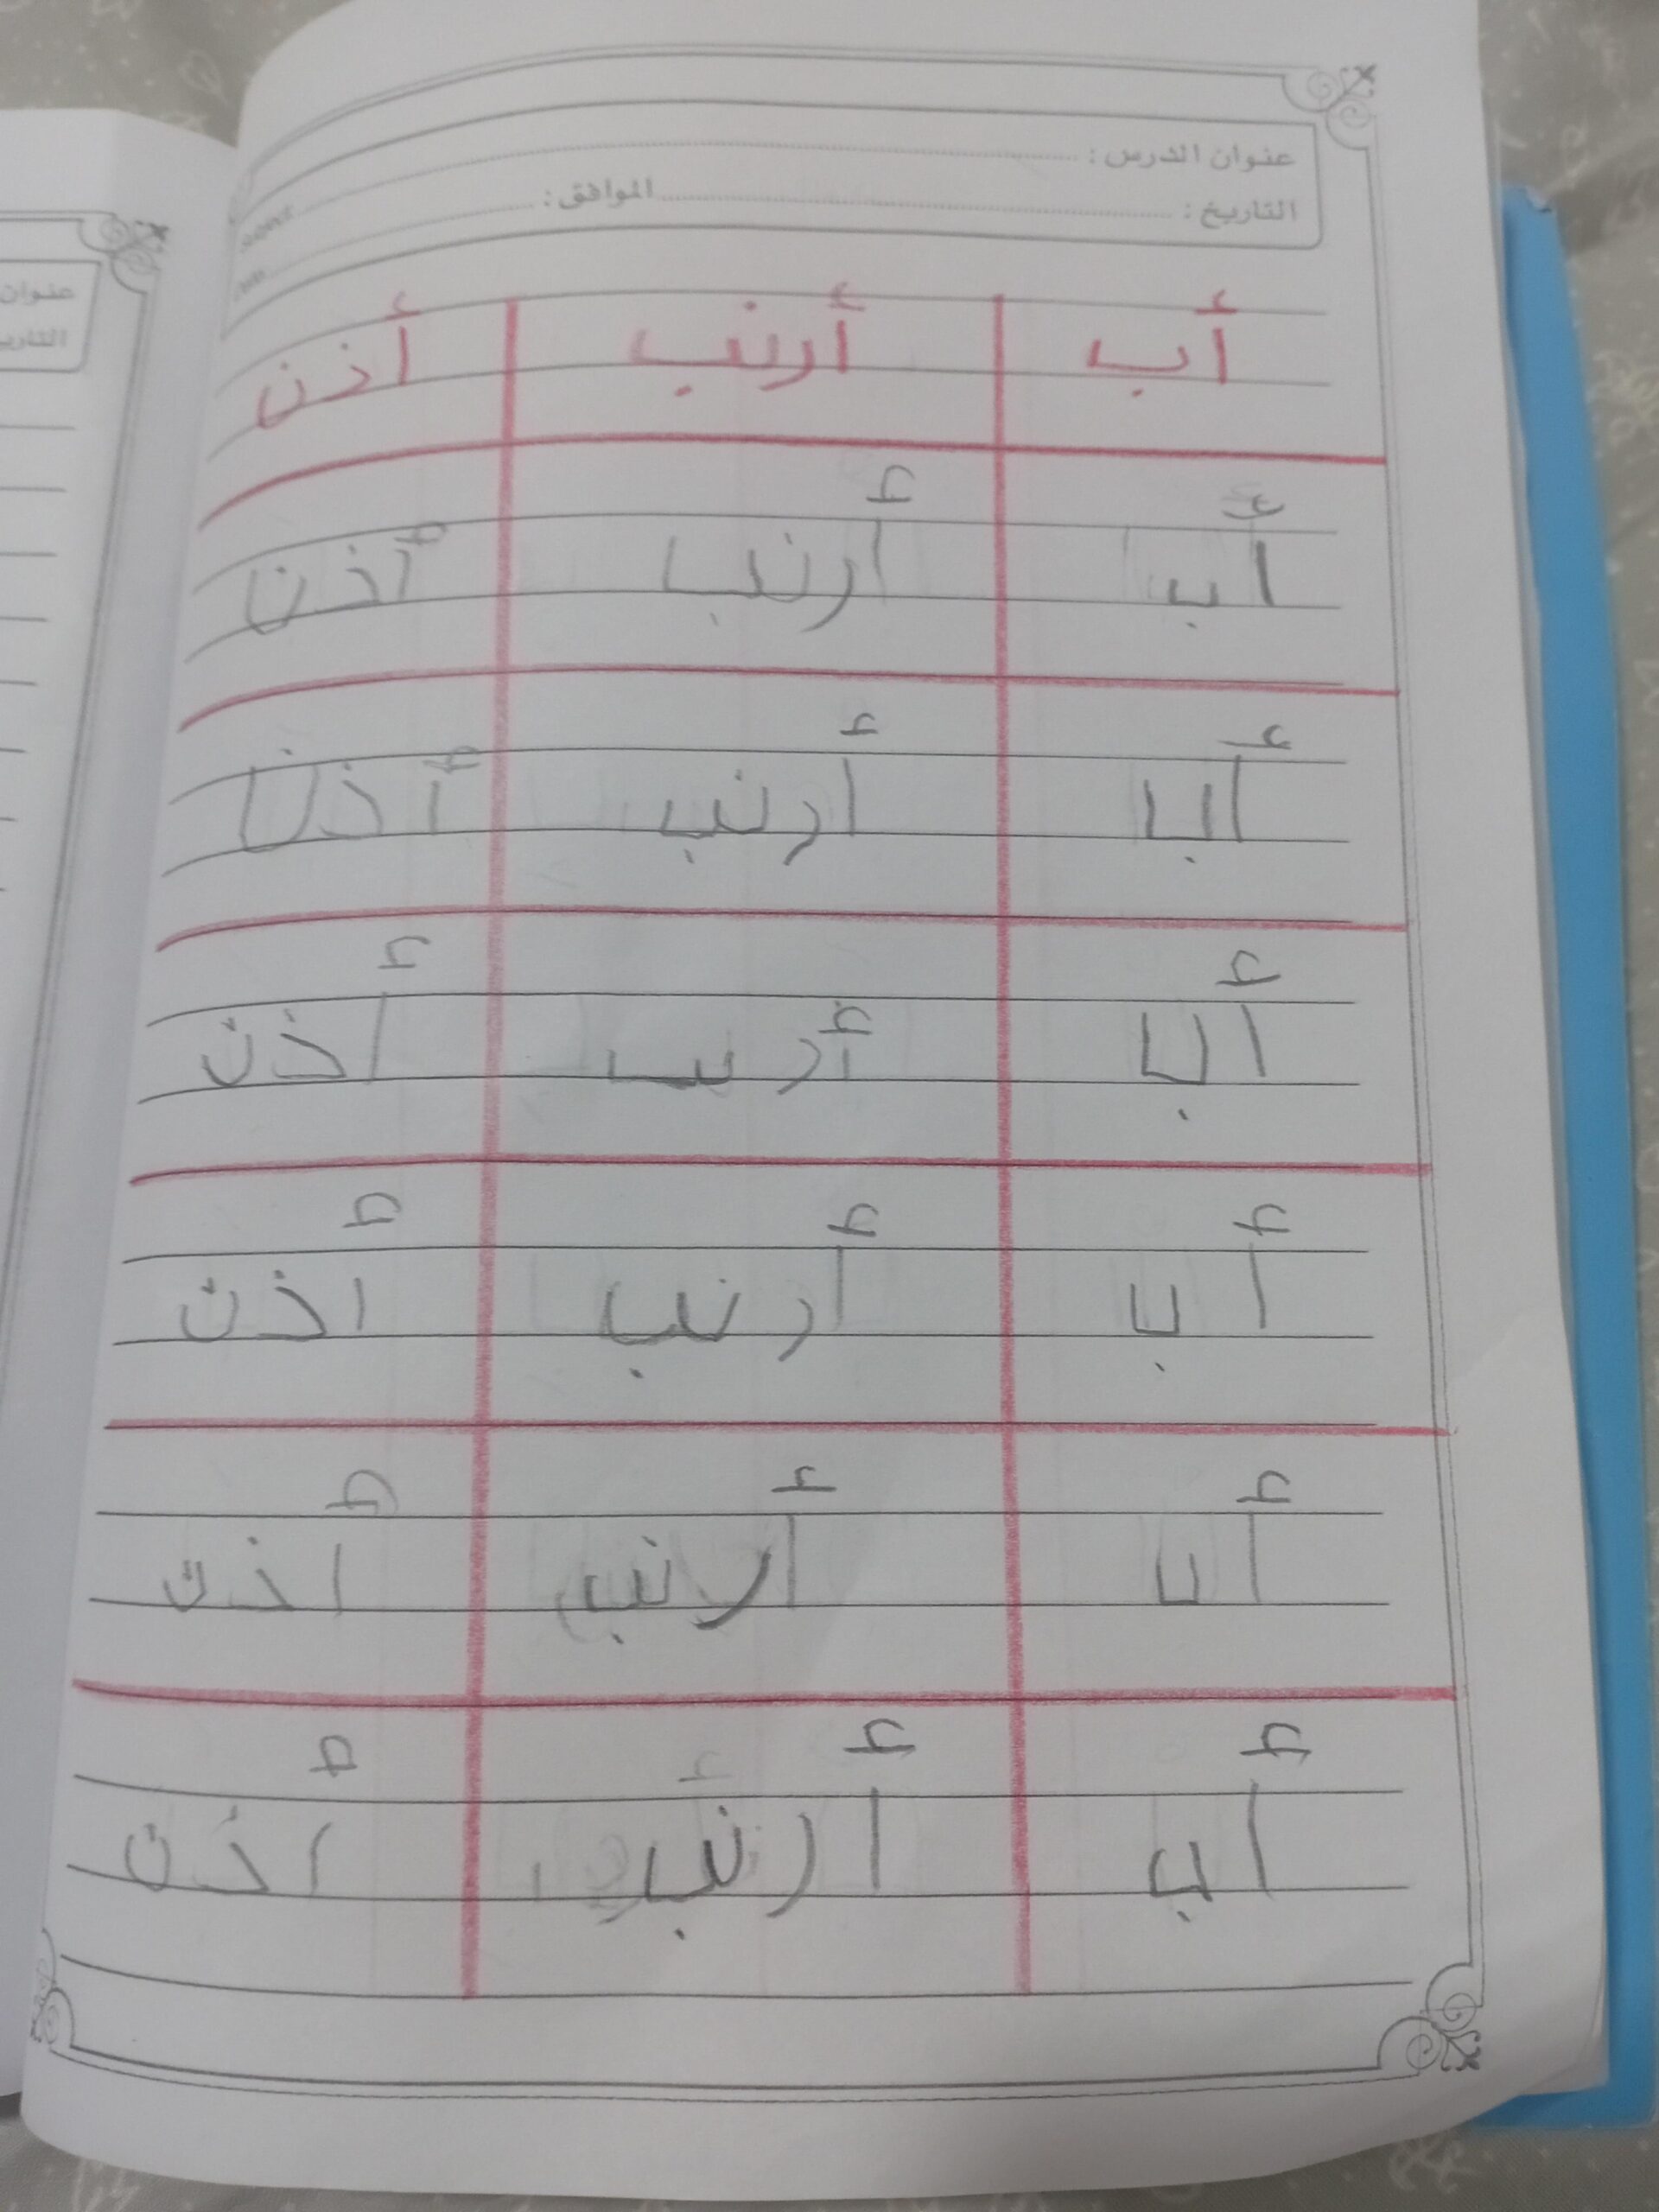 عنوان الدرس :
التاريخ : الموافق :
أب أرنب أذن
أب أرنب أذن
أب أرنب أذن
أب أرنب أذن
أب أرنب أذن
أب أرنب أذن
أب أرنب أذن
عنوان
التاريخ